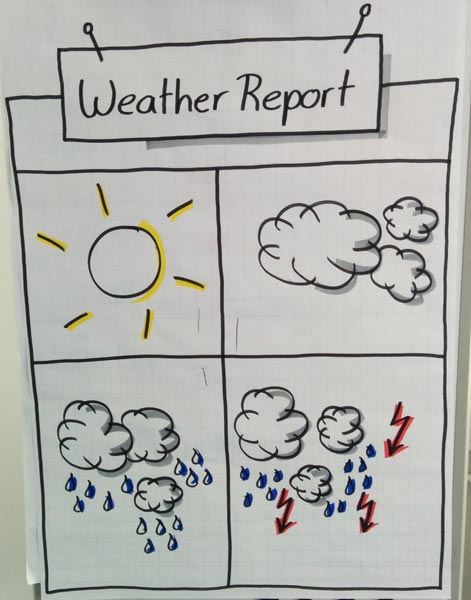 Weather Report